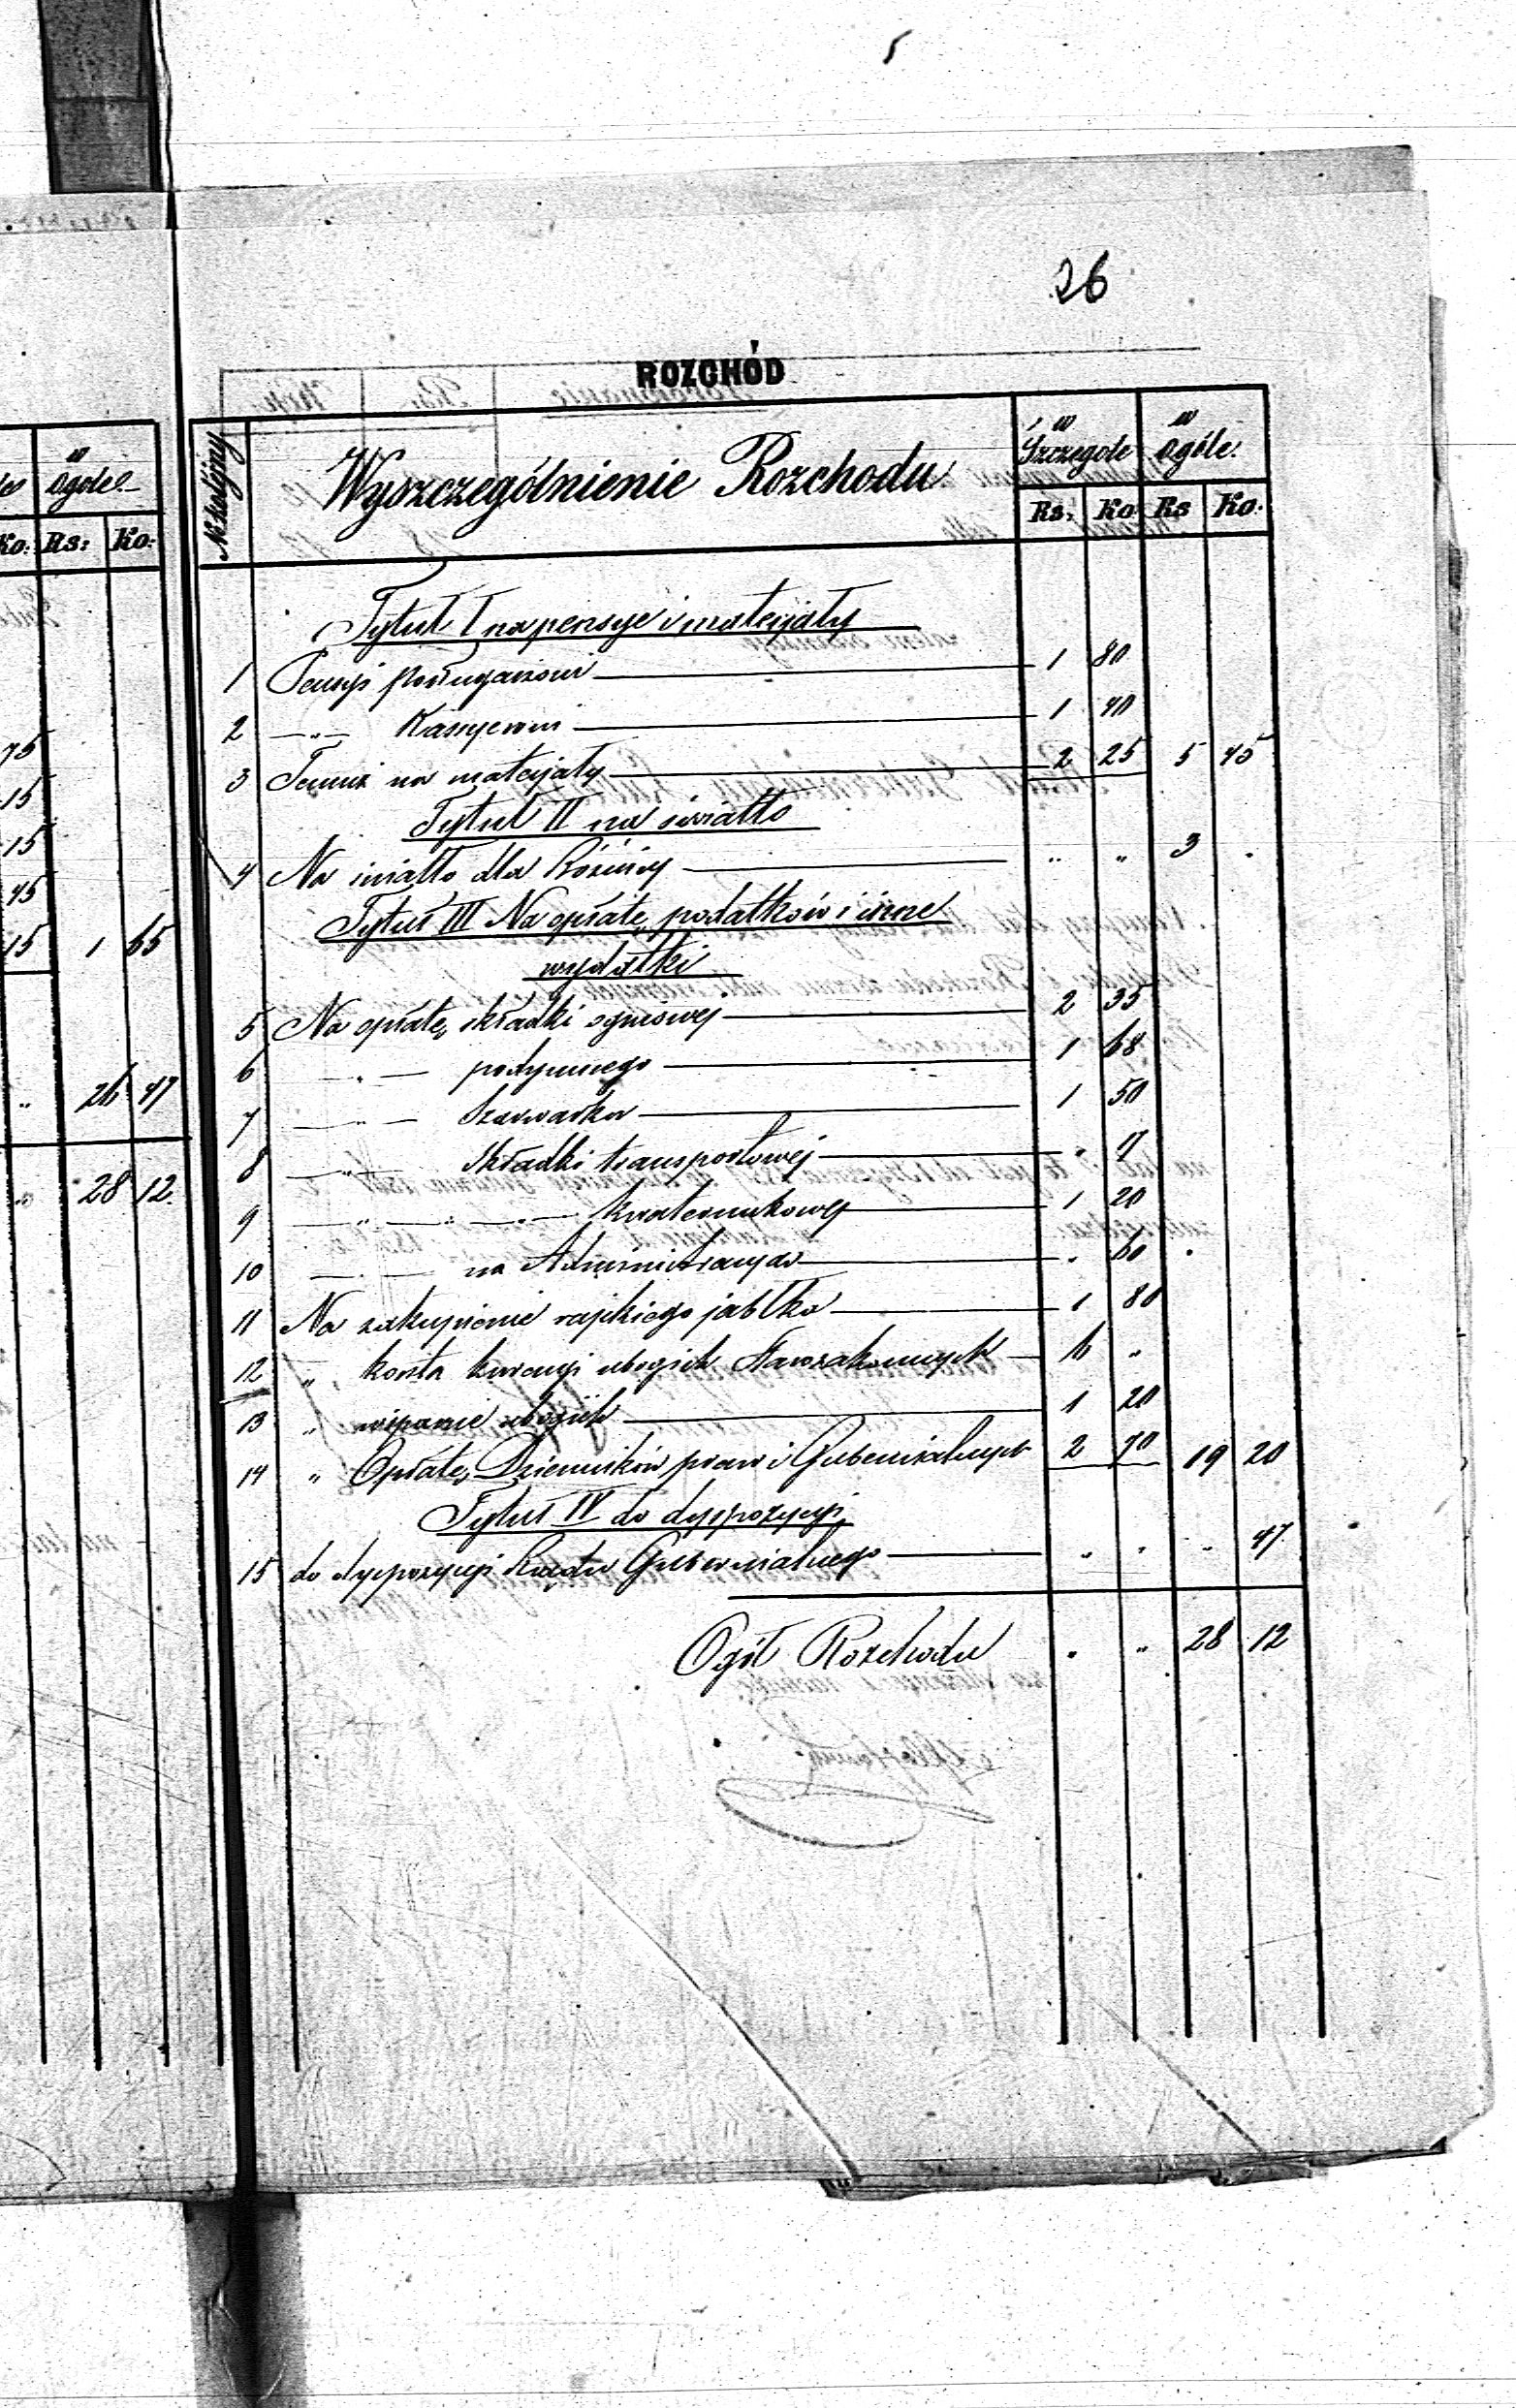 26
ROZCHÓD
№ kolejny
Wyszczególnienie Rozchodu
w Szczegole
w Ogóle
Rs: Ko Rs Ko:
ogole
Ko: Rs: Ko:
Tytuł I na pensye i materyały
1 Pensyi 1 80
2 —„— Kassyerowi 1 40
3 Temuż na materyały 2 25 5 45
Tytuł II na światło
4 Na światło dla Bóżnicy „ „ 3 .
Tytuł III Na opłatę podatków i inne
wydatki
5 Na opłatę składki ogniowej 2 35
6 —„— podymnego 1 68
7 —„— Szarwarku 1 50
8 —„— składki transportowej „ 17
9 —„— —„— kwaterunkowej 1 20
10 —„— na Administracyą . 60
11 Na zakupienie rajskiego jabłka 1 80
12 „ koszta kuracyi ubogich Starozakonnych 6 „
13 „ wsparcie ubogich 1 20
14 „ Opłatę Dzienników praw i Gubernialnych 2 70 19 20
Tytuł IV do dyspozycyi
15 do dyspozycyi Rządu Gubernialnego „ „ „ 47
Ogół Rozchodu „ „ 28 12
75
15
15
45
15 1 65
„ 26 47
„ 28 12